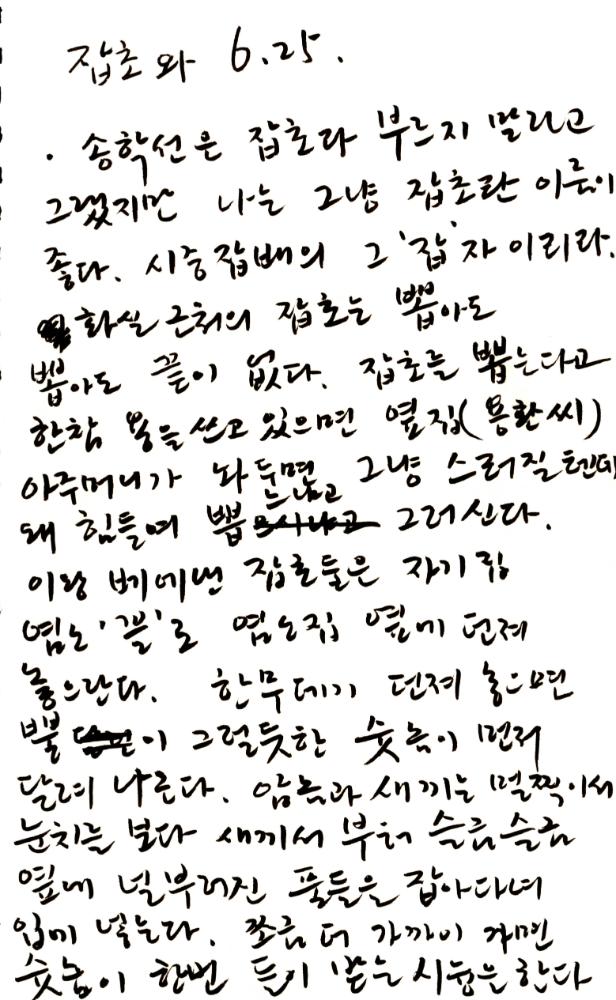 잡초와 6.25.
· 송학선은 잡초라 부르지 말라고
그랬지만 나는 그냥 잡초란 이름이
좋다. 시중잡배의 그 '잡'자 이리라.
화실 근처의 잡초는 뽑아도
뽑아도 끝이 없다. 잡초를 뽑는다고
한참 용을 쓰고 있으면 옆집(용환씨)
아주머니가 놔두면 그냥 스러질텐데
왜 힘들여 뽑느냐고 그러신다.
이왕 베어낸 잡초들은 자기집
염소 '꼴'로 염소집 옆에 던져
놓으란다. 한무데기 던져 놓으면
뿔이 그럴듯한 숫놈이 먼저
달려 나온다. 암놈과 새끼는 멀찍이서
눈치를 보다 새끼서 부터 슬금슬금
옆에 널부러진 풀들을 잡아다녀
입에 넣는다. 쪼금 더 가까이 가면
숫놈이 한번 들이 받는 시늉을 한다